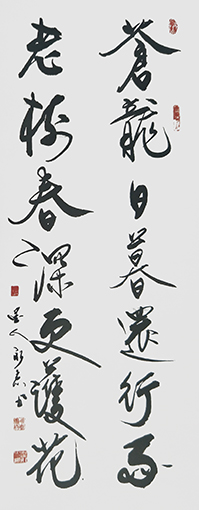 蒼龍日暮還行雨
老樹春深更護花